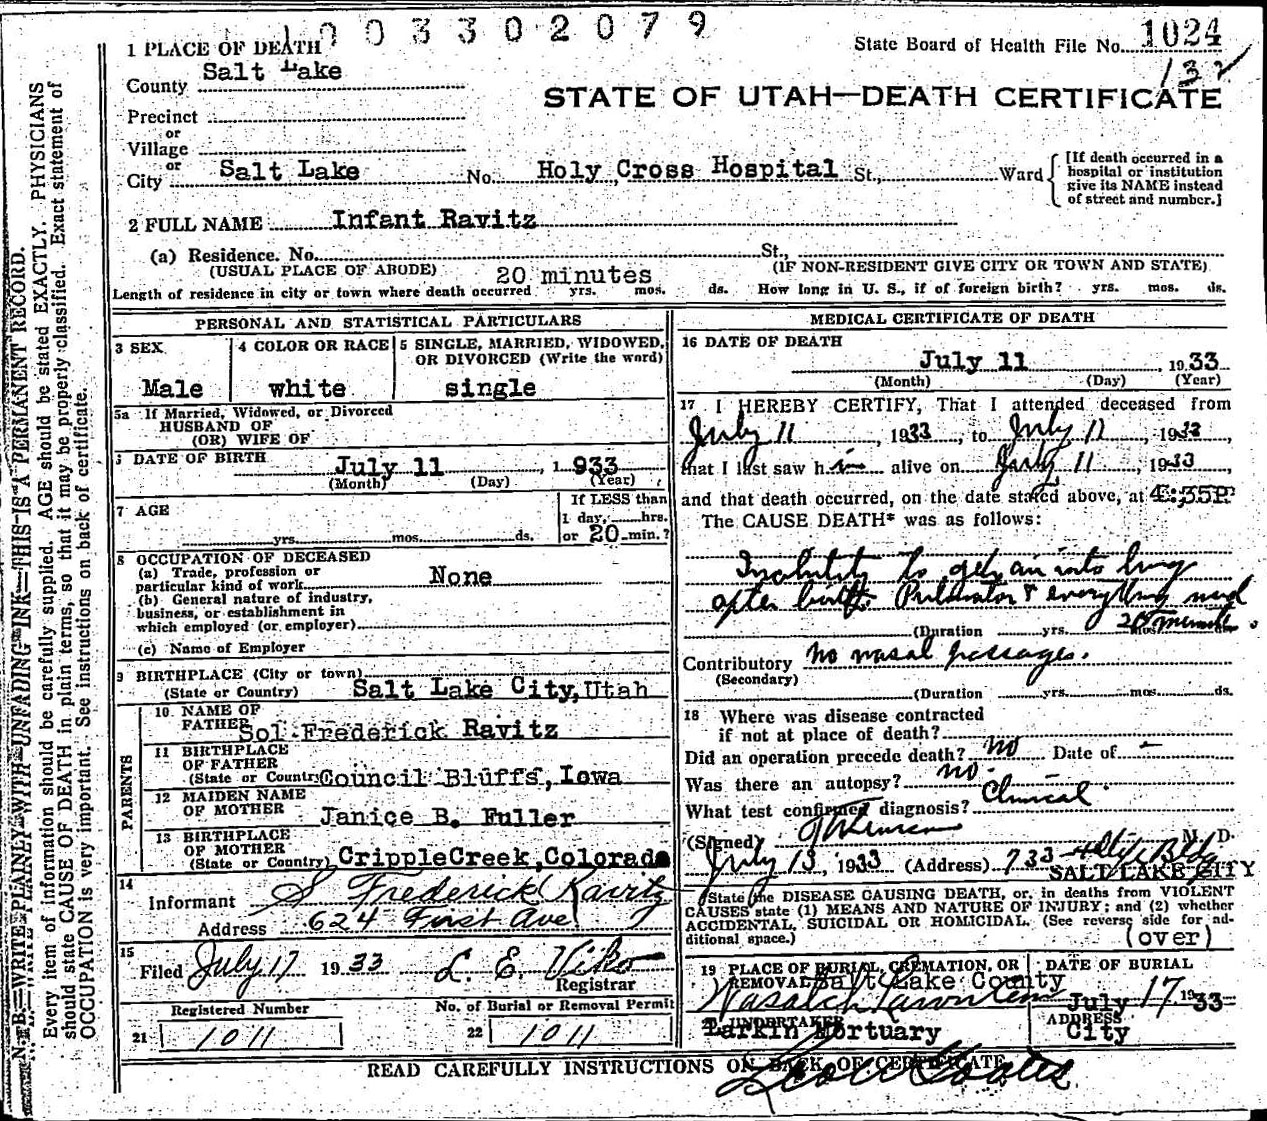 1003302079
State Board of Health File No. 1024
132
1 PLACE OF DEATH
County Salt Lake
STATE OF UTAH—DEATH CERTIFICATE
Precinct
or
Village
or
City Salt Lake No. Holy Cross Hospital St., Ward
[If death occurred in a hospital or institution give its NAME instead of street and number.]
2 FULL NAME Infant Ravitz
(a) Residence. No. St.,
(USUAL PLACE OF ABODE) (IF NON-RESIDENT GIVE CITY OR TOWN AND STATE)
20 minutes
Length of residence in city or town where death occurred yrs. mos. ds. How long in U. S., if of foreign birth? yrs. mos. ds.
PERSONAL AND STATISTICAL PARTICULARS
3 SEX
Male
4 COLOR OR RACE
white
5 SINGLE, MARRIED, WIDOWED,
OR DIVORCED (Write the word)
single
5a If Married, Widowed, or Divorced
HUSBAND OF
(OR) WIFE OF
DATE OF BIRTH July 11, 1933
(Month) (Day) (Year)
7 AGE
yrs. mos. ds.
If LESS than
1 day, hrs.
or 20 min.?
8 OCCUPATION OF DECEASED
(a) Trade, profession or
particular kind of work None
(b) General nature of industry,
business, or establishment in
which employed (or employer)
(c) Name of Employer
9 BIRTHPLACE (City or town)
(State or Country) Salt Lake City, Utah
PARENTS
10 NAME OF
FATHER Sol Frederick Ravitz
11 BIRTHPLACE
OF FATHER
(State or Country) Council Bluffs, Iowa
12 MAIDEN NAME
OF MOTHER Janice B. Fuller
13 BIRTHPLACE
OF MOTHER
(State or Country) Cripple Creek, Colorado
14
Informant S Frederick Ravitz
Address 624 First Ave
15
Filed July 17 1933 L. E. Viko
Registrar
Registered Number
21 1011
No. of Burial or Removal Permit
22 1011
MEDICAL CERTIFICATE OF DEATH
16 DATE OF DEATH
July 11, 1933
(Month) (Day) (Year)
17 I HEREBY CERTIFY, That I attended deceased from
July 11, 1933, to July 11, 1933
that I last saw him alive on July 11, 1933,
and that death occurred, on the date stated above, at 4:35P
The CAUSE DEATH* was as follows:
Inability to get air into lung
after birth. Pulmotor & everything used
20 minutes
(Duration yrs. mos.
Contributory No nasal passages.
(Secondary)
(Duration yrs. mos. ds.
18 Where was disease contracted
if not at place of death?
Did an operation precede death? no Date of —
Was there an autopsy? no.
What test confirmed diagnosis? Clinical.
(Signed) M. D.
July 13, 1933 (Address) 733 Bldg
SALT LAKE CITY
State the DISEASE CAUSING DEATH, or, in deaths from VIOLENT
CAUSES state (1) MEANS AND NATURE OF INJURY; and (2) whether
ACCIDENTAL, SUICIDAL OR HOMICIDAL. (See reverse side for ad-
ditional space.)
(over)
19 PLACE OF BURIAL, CREMATION, OR
REMOVAL Salt Lake County
Wasatch Lawn
DATE OF BURIAL
July 17 1933
UNDERTAKER
Larkin Mortuary
ADDRESS
City
READ CAREFULLY INSTRUCTIONS ON BACK OF CERTIFICATE
N. B.—WRITE PLAINLY WITH UNFADING INK—THIS IS A PERMANENT RECORD.
Every item of information should be carefully supplied. AGE should be stated EXACTLY. PHYSICIANS
should state CAUSE OF DEATH in plain terms, so that it may be properly classified. Exact statement of
OCCUPATION is very important. See instructions on back of certificate.